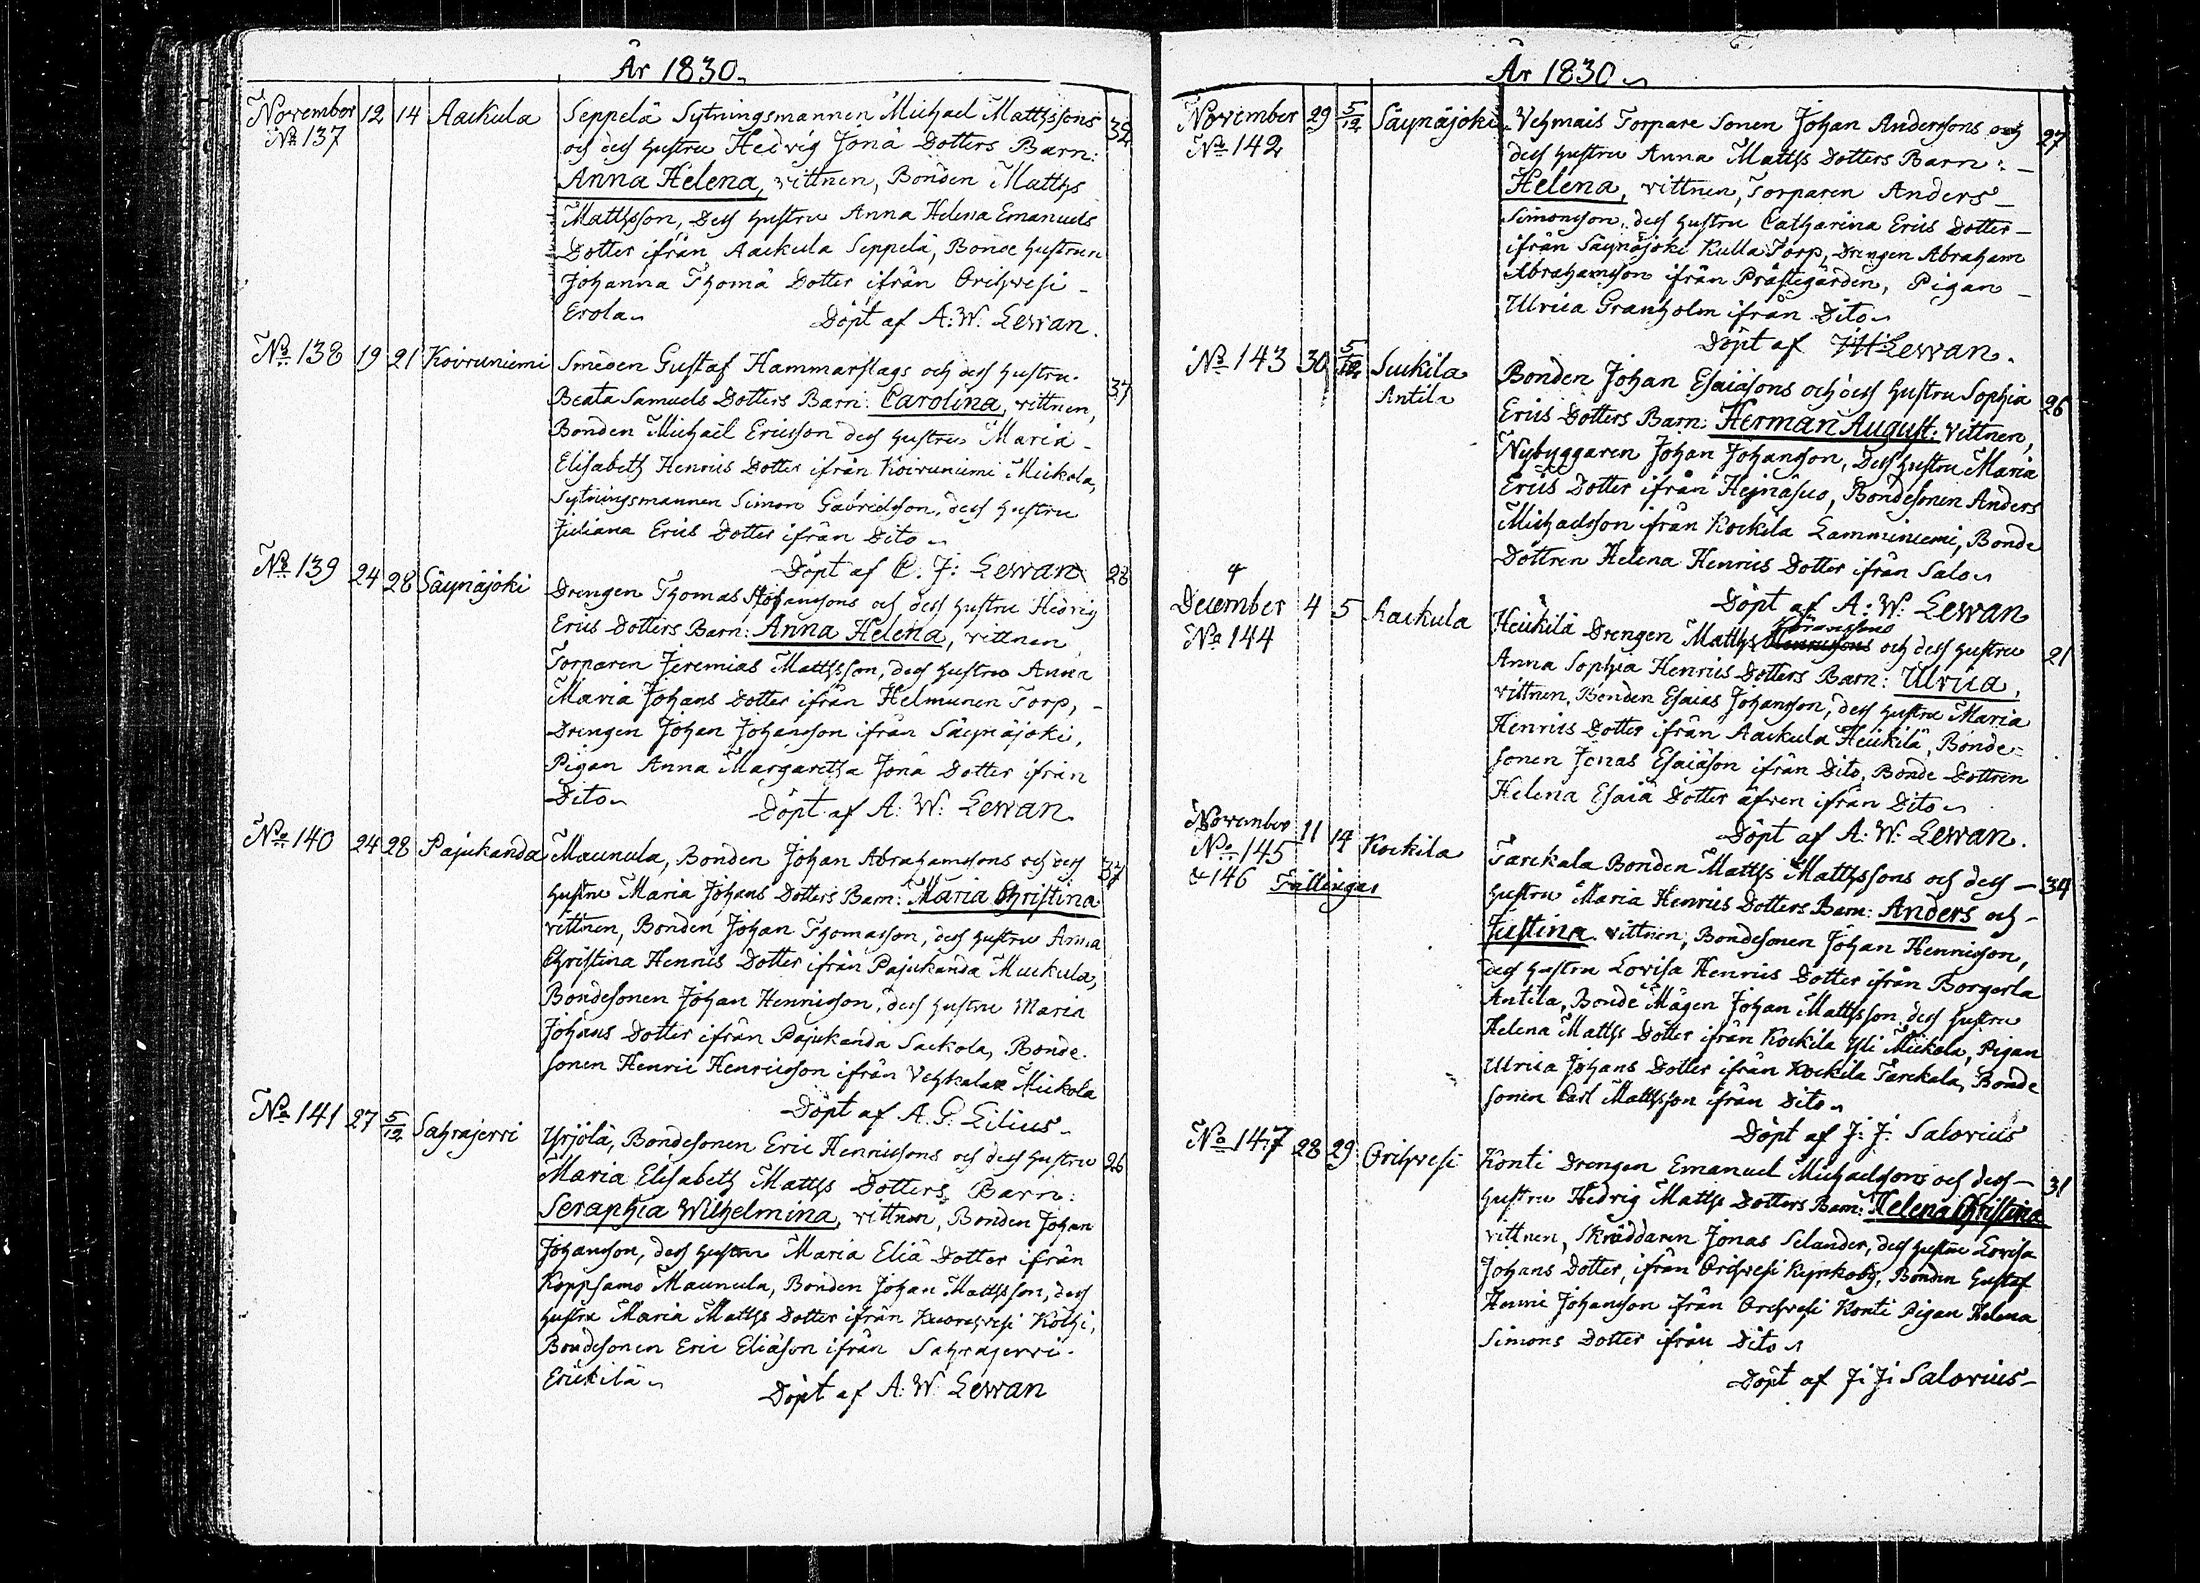 År 1830
November 12 14 Aackula Seppelä Sytningsmannen Michael Matthssons 39
No 137 och dess hustru Hedvig Jona Dotters Barn:
Anna Helena, vittnen, Bonden Matths
Matthsson, Dess hustru Anna Helena Emanuels
Dotter ifrån Aackula Seppelä, Bonde hustrun
Johanna Thomä Dotter ifrån Orihvesi
Erola
Döpt af A: W: Lewan.
No 138 19 21 Koivuniemi Smeden Gustaf Hammarslags och dess hustru 37
Beata Samuels Dotters Barn: Carolina, vittnen,
Bonden Michaël Ericsson dess hustru Maria
Elisabeth Henrics Dotter ifrån Koivuniemi Mickola,
Sytningsmannen Simon Gabrielsson, dess hustru
Juliana Erics Dotter ifrån Dito
Döpt af C. J: Lewan
No 139 24 28 Säynäjoki Drengen Thomas Johanssons och dess hustru Hedvig 28
Erics Dotters Barn: Anna Helena, vittnen
Torparen Jeremias Matthsson, dess hustru Anna
Maria Johans Dotter ifrån Helmunen Torp,
Drengen Johan Johansson ifrån Säynäjoki,
Pigan Anna Margaretha Jona Dotter ifrån
Dito
Döpt af A: W: Lewan
No 140 24 28 Pajukanda Maunula, Bonden Johan Abrahamssons och dess 37
hustru Maria Johans Dotters Barn: Maria Christina
vittnen, Bonden Johan Thomasson, dess hustru Anna
Christina Henrics Dotter ifrån Pajukanda Muckula,
Bondesonen Johan Henricsson, dess hustru Maria
Johans Dotter ifrån Pajukanda Sackola, Bonde
sonen Henric Henricsson ifrån Vehkalax Mickola
Döpt af A. G. Lilius
No 141 27 5/12 Sahrajervi Yrjölä, Bondesonen Eric Henricssons och dess hustru 26
Maria Elisabeth Matths Dotters Barn:
Seraphia Wilhelmina, vittnen, Bonden Johan
Johansson, dess hustru Maria Eliä Dotter ifrån
Koppsamo Maunula, Bonden Johan Matthsson, dess
hustru Maria Matths Dotter ifrån Kuorevesi
Bondesonen Eric Eliäson ifrån Sahrajervi
Erickilä
Döpt af A: W: Lewan
År 1830
November 29 5/12 Säynäjoki Vehmais Torpare Sonen Johan Anderssons och 27
No 142 dess hustru Anna Matths Dotters Barn:
Helena, vittnen, Torparen Anders
Simonsson, dess hustru Catharina Erics Dotter
ifrån Säynäjoki Kulla Torp, Drengen Abraham
Abrahamsson ifrån Prästegården, Pigan
Ulrica Granholm ifrån Dito
Döpt af Lewan.
No 143 30 5/12 Suckila Bonden Johan Esaiäsons och dess hustru Sophia 26
Antila Erics Dotters Barn: Herman August: vittnen,
Nybyggaren Johan Johansson, Dess hustru Maria
Erics Dotter ifrån Hejnäsuo, Bondesonen Anders
Michaelsson ifrån Kockila Lamminiemi, Bonde
Dottren Helena Henrics Dotter ifrån Salo
Döpt af A: W: Lewan
December 4 5 Aackula Heickilä Drengen Matths Henricssons och dess hustru 21
No 144 Anna Sophia Henrics Dotters Barn: Ulrica,
vittnen, Bonden Esaias Johansson, dess hustru Maria
Henrics Dotter ifrån Aackula Heickilä, Bonde
sonen Jonas Esaiäson ifrån Dito, Bonde Dottren
Helena Esaiä Dotter äfven ifrån Dito
Döpt af A: W: Lewan.
November 11 14 Kockila Tarckala Bonden Matths Matthssons och dess 34
No 145 hustru Maria Henrics Dotters Barn: Anders och
& 146 Tvillingar Justina. vittnen, Bondesonen Johan Henricsson,
dess hustru Lovisa Henrics Dotter ifrån Borgerla
Antila, Bonde Mågen Johan Mattsson, dess hustru
Helena Matths Dotter ifrån Kockila Yli Mickola, Pigan
Ulrica Johans Dotter ifrån Kockila Tarckala, Bonde
sonen Carl Matthsson ifrån Dito
Döpt af J: J: Salovius
No 147 28 29 Orihvesi Konti Drengen Emanuel Michaelssons och dess 31
hustru Hedvig Matths Dotters Barn: Helena Christina
vittnen, Skräddaren Jonas Selander, dess hustru Lovisa
Johans Dotter, ifrån Orihvesi, Bonden Gustaf
Henric Johansson ifrån Orihvesi Konti Pigan Helena
Simons Dotter ifrån Dito
Döpt af J: J: Salovius